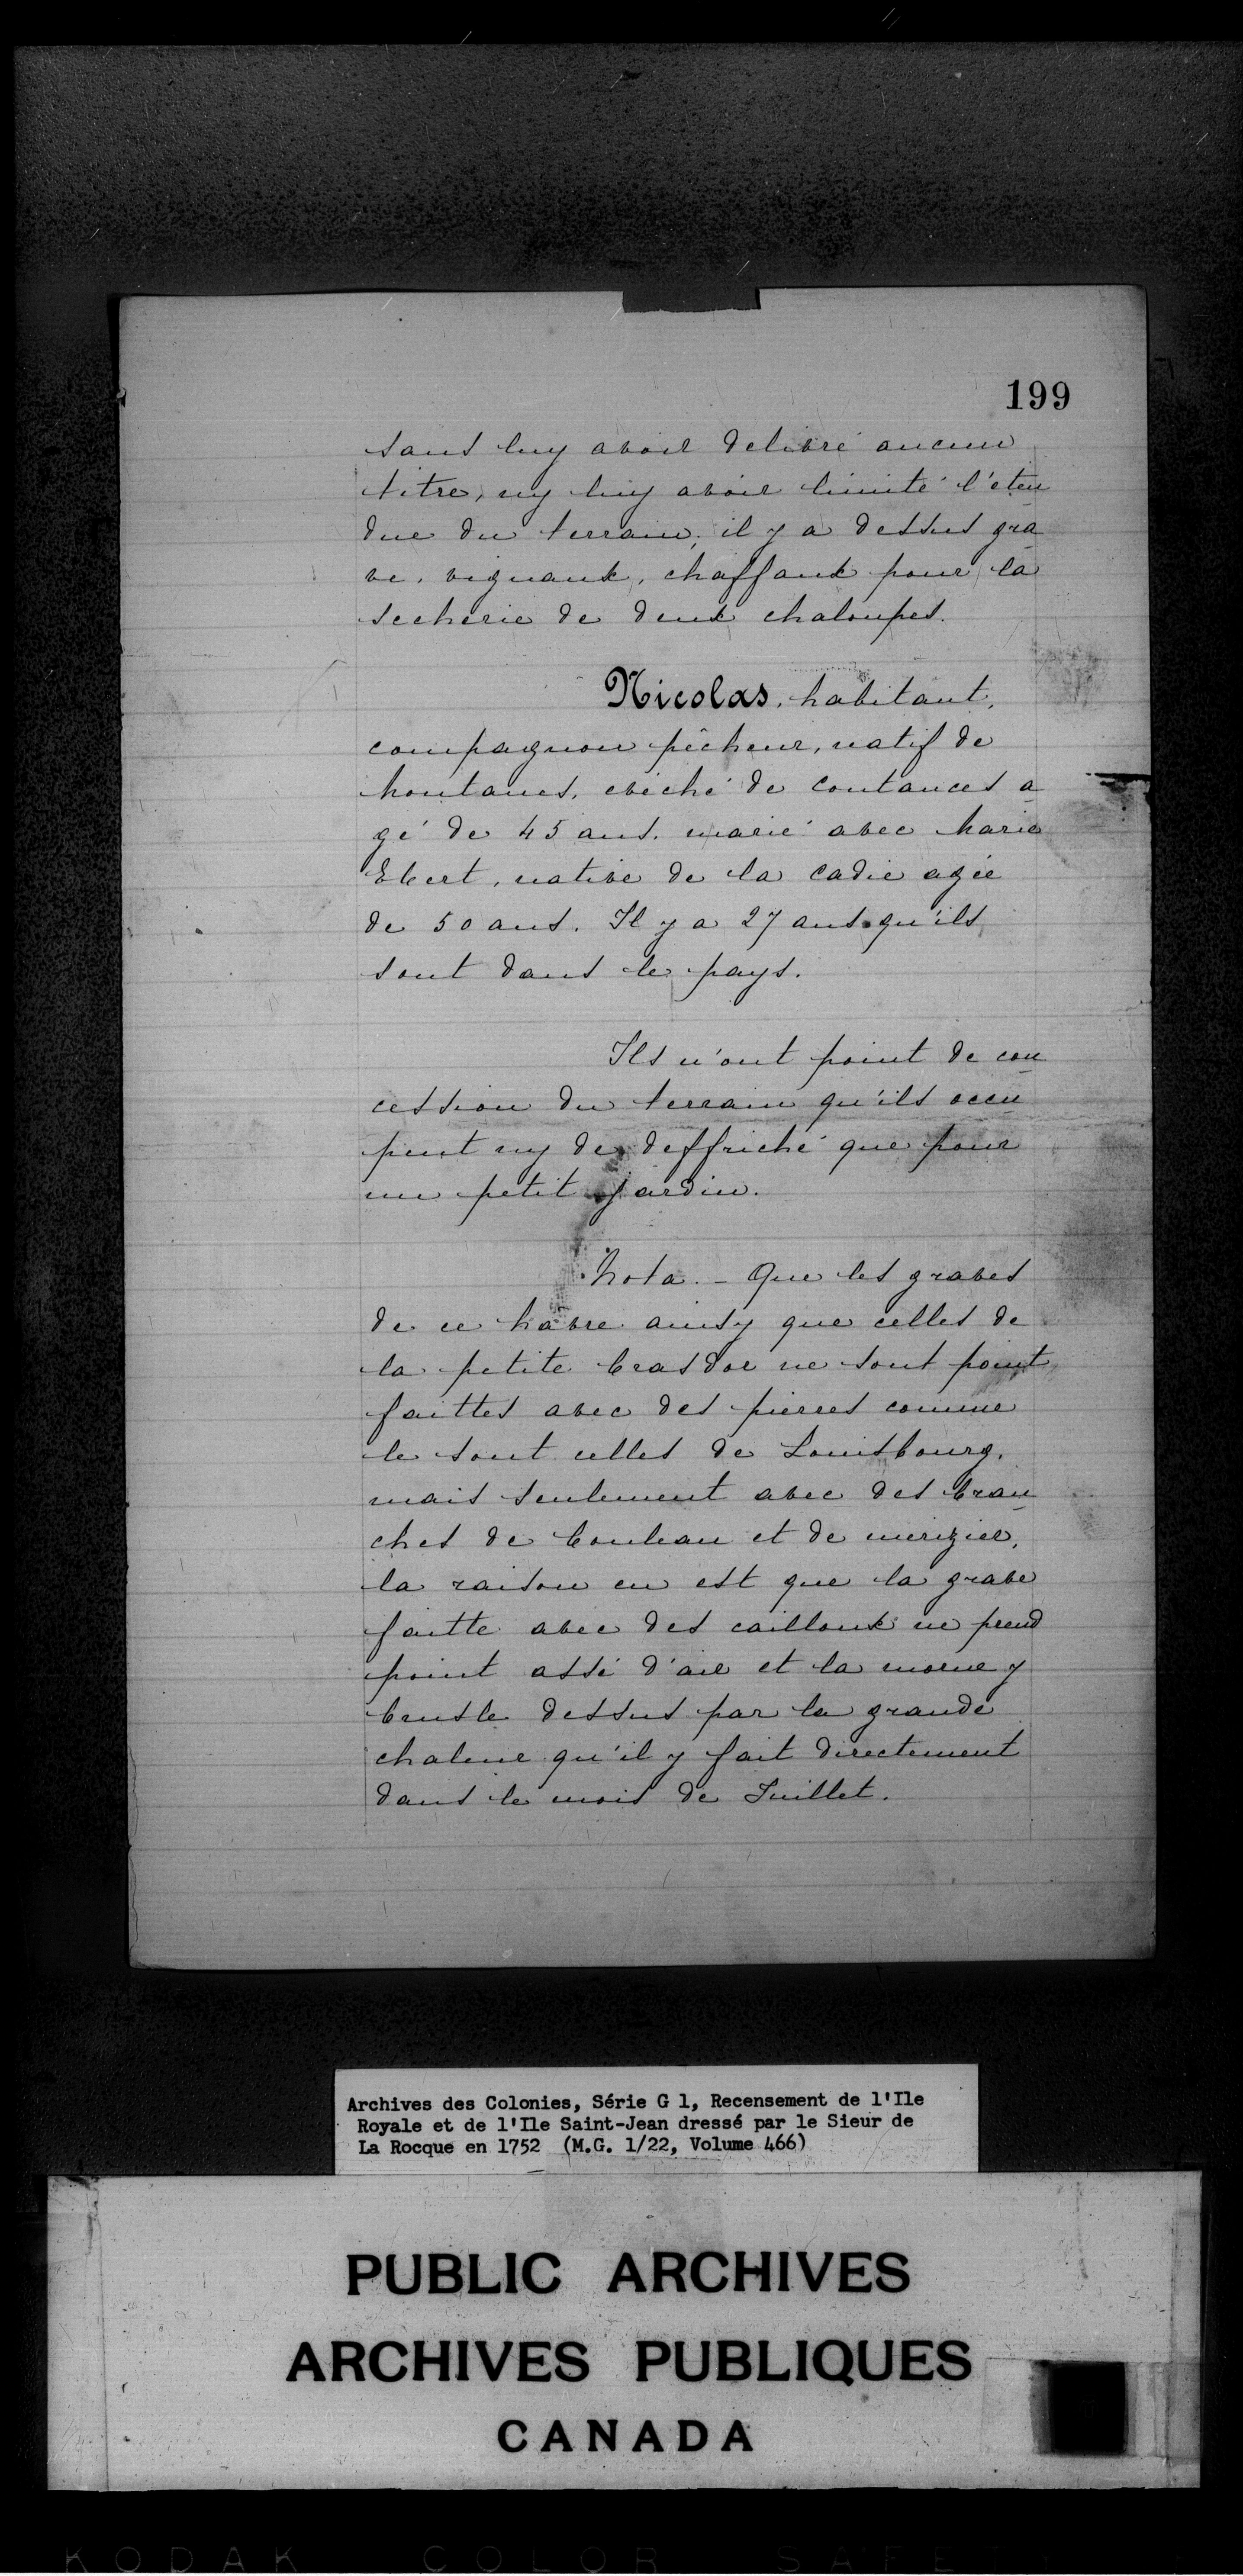 199
sans luy avoir delivré aucun
titre, ny luy avoir limité l'éten
due du terrain; il y a dessus gra
ve, vignaux, chaffaux pour la
secherie de deux chaloupes.
Nicolas, habitant,
compagnon pêcheur, natif de
hontanes, evéché de Coutances a
gé de 45 ans, marié avec Marie
Ebert, native de la Cadie agée
de 50 ans. Il y a 27 ans qu'ils
sont dans le pays.
Ils n'ont point de con
cession du terrain qu'ils occu
pent ny de deffriché que pour
un petit jardin.
Nota. - Que les graves
de ce hâvre ainsy que celles de
la petite brasdor ne sont point
faittes avec des pierres comme
le sont celles de Louisbourg,
mais seulement avec des bran
ches de bouleau et de merizier,
la raison en est que la grave
faitte avec des cailloux ne prend
point assé d'air et la morue y
brusle dessus par la grande
chaleur qu'il y fait directement
dans le mois de Juillet.
Archives des Colonies, Série G 1, Recensement de l'Ile
Royale et de l'Ile Saint-Jean dressé par le Sieur de
La Rocque en 1752 (M.G. 1/22, Volume 466)
PUBLIC ARCHIVES
ARCHIVES PUBLIQUES
CANADA
KODAK COLOR SAFETY